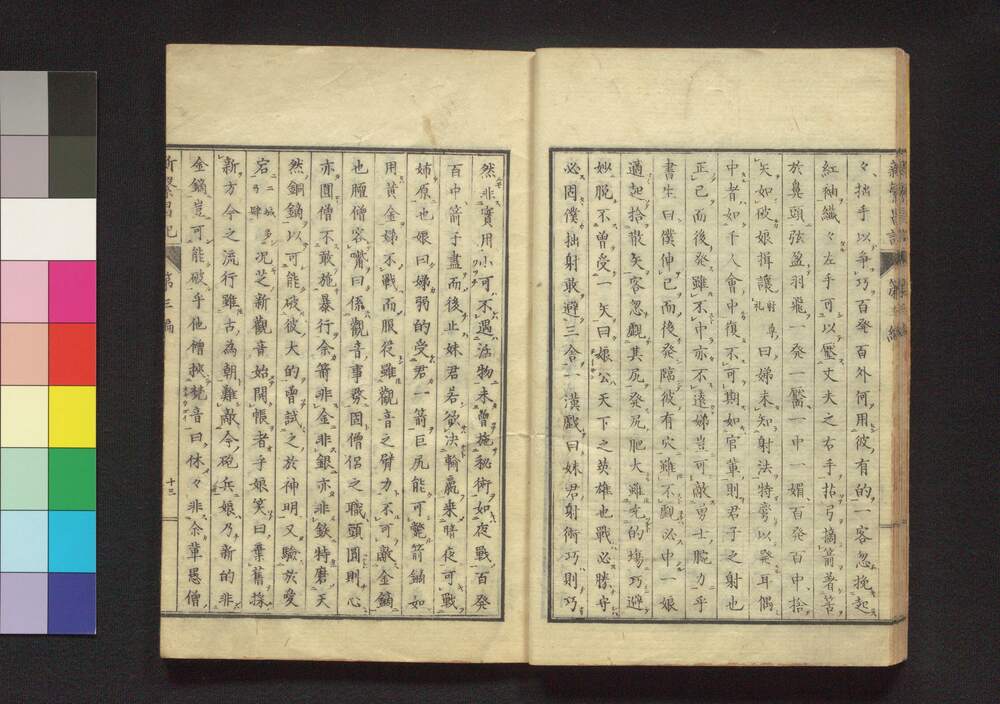 々拙手以争巧百発百外何用彼有的一客忽挽起
紅袖繊々左手可以壓丈夫之右手拈弓摘箭著筈
於鼻頭弦盈羽飛一発一靨一中一媚百発百中捨
矢如破娘揖讓射礼卑曰娣未知射法特彎以発耳偶
中者如千人會中復不可期如官軰則君子之射也
正己而後発雖不中亦不遠娣豈可敵勇士腕力乎
書生曰僕伸己而後発臨彼有穴雖不觀必中一娘
適起拾散矢客忽觀其尻発尻肥大雖先的塲巧避
妙脱不曽受一矢曰娘公天下之英雄也戰必勝守
必固僕拙射敢避三舎一漢戯曰妹君射術巧則巧
然非實用小可不遇活物未曽施秘術如夜戰百発
百中箭子盡而後止妹君若欲决輸贏来暗夜可戰
姉原也娘曰娣弱的受君一箭巨尻能可斃箭鏑如
用黄金娣不戰而服従雖觀音之臂力不可敵金鏑
也腫僧容嘴曰係觀音事務固僧侶之職頭圓則心
亦圓僧不敢施暴行余箭非金非銀亦非鉄特磨天
然銅鏑以可能破彼大的曽試之於神明又驗於愛
宕ニ二城ヲ肆多况芝新觀音始開帳者乎娘笑曰棄舊採
新方今之流行雖古為朝難敵今砲兵娘乃新的非
金鏑豈可能破乎他僧挾梵音曰休々非余輩愚僧
新繁昌記 第三編 十三